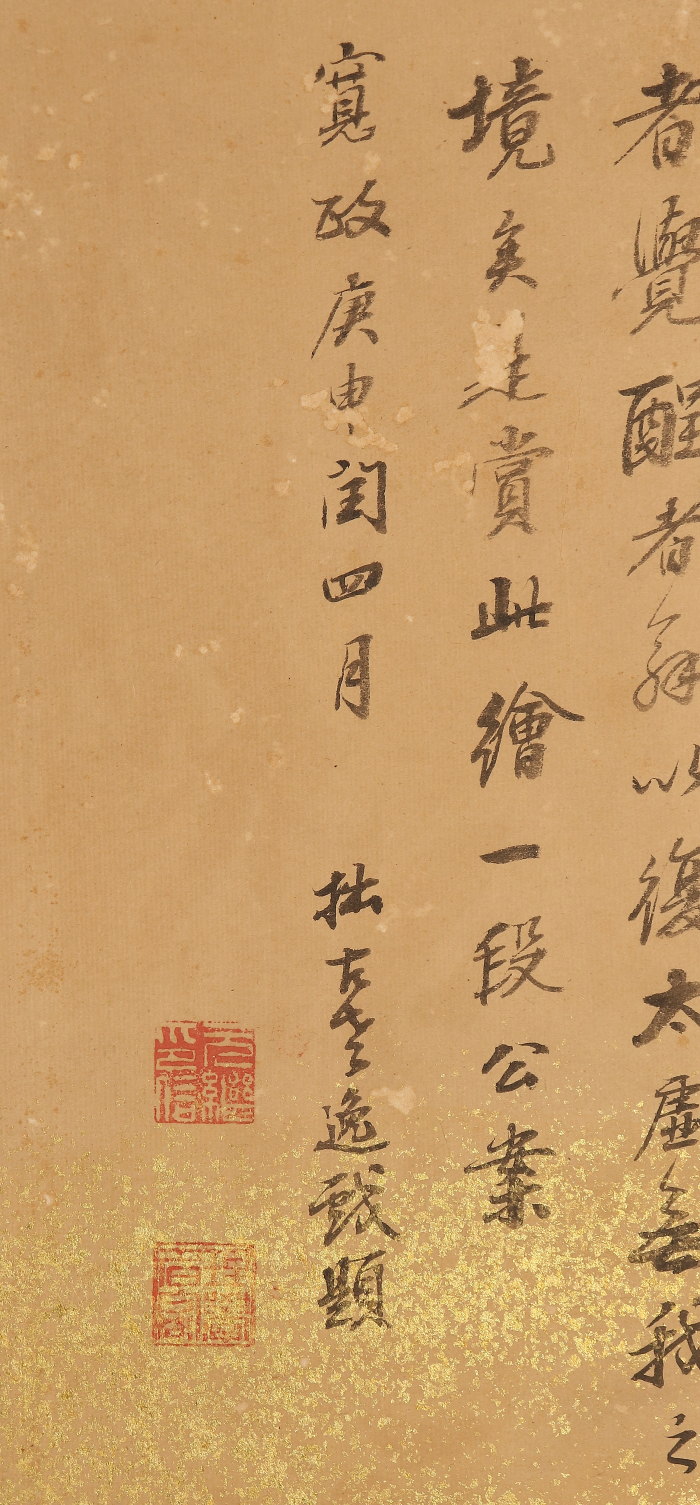 者覺醒者翁以復太虛無我之
境矣是賞此繪一段公案
寬政庚申閏四月 拙古老逸戲題
印信